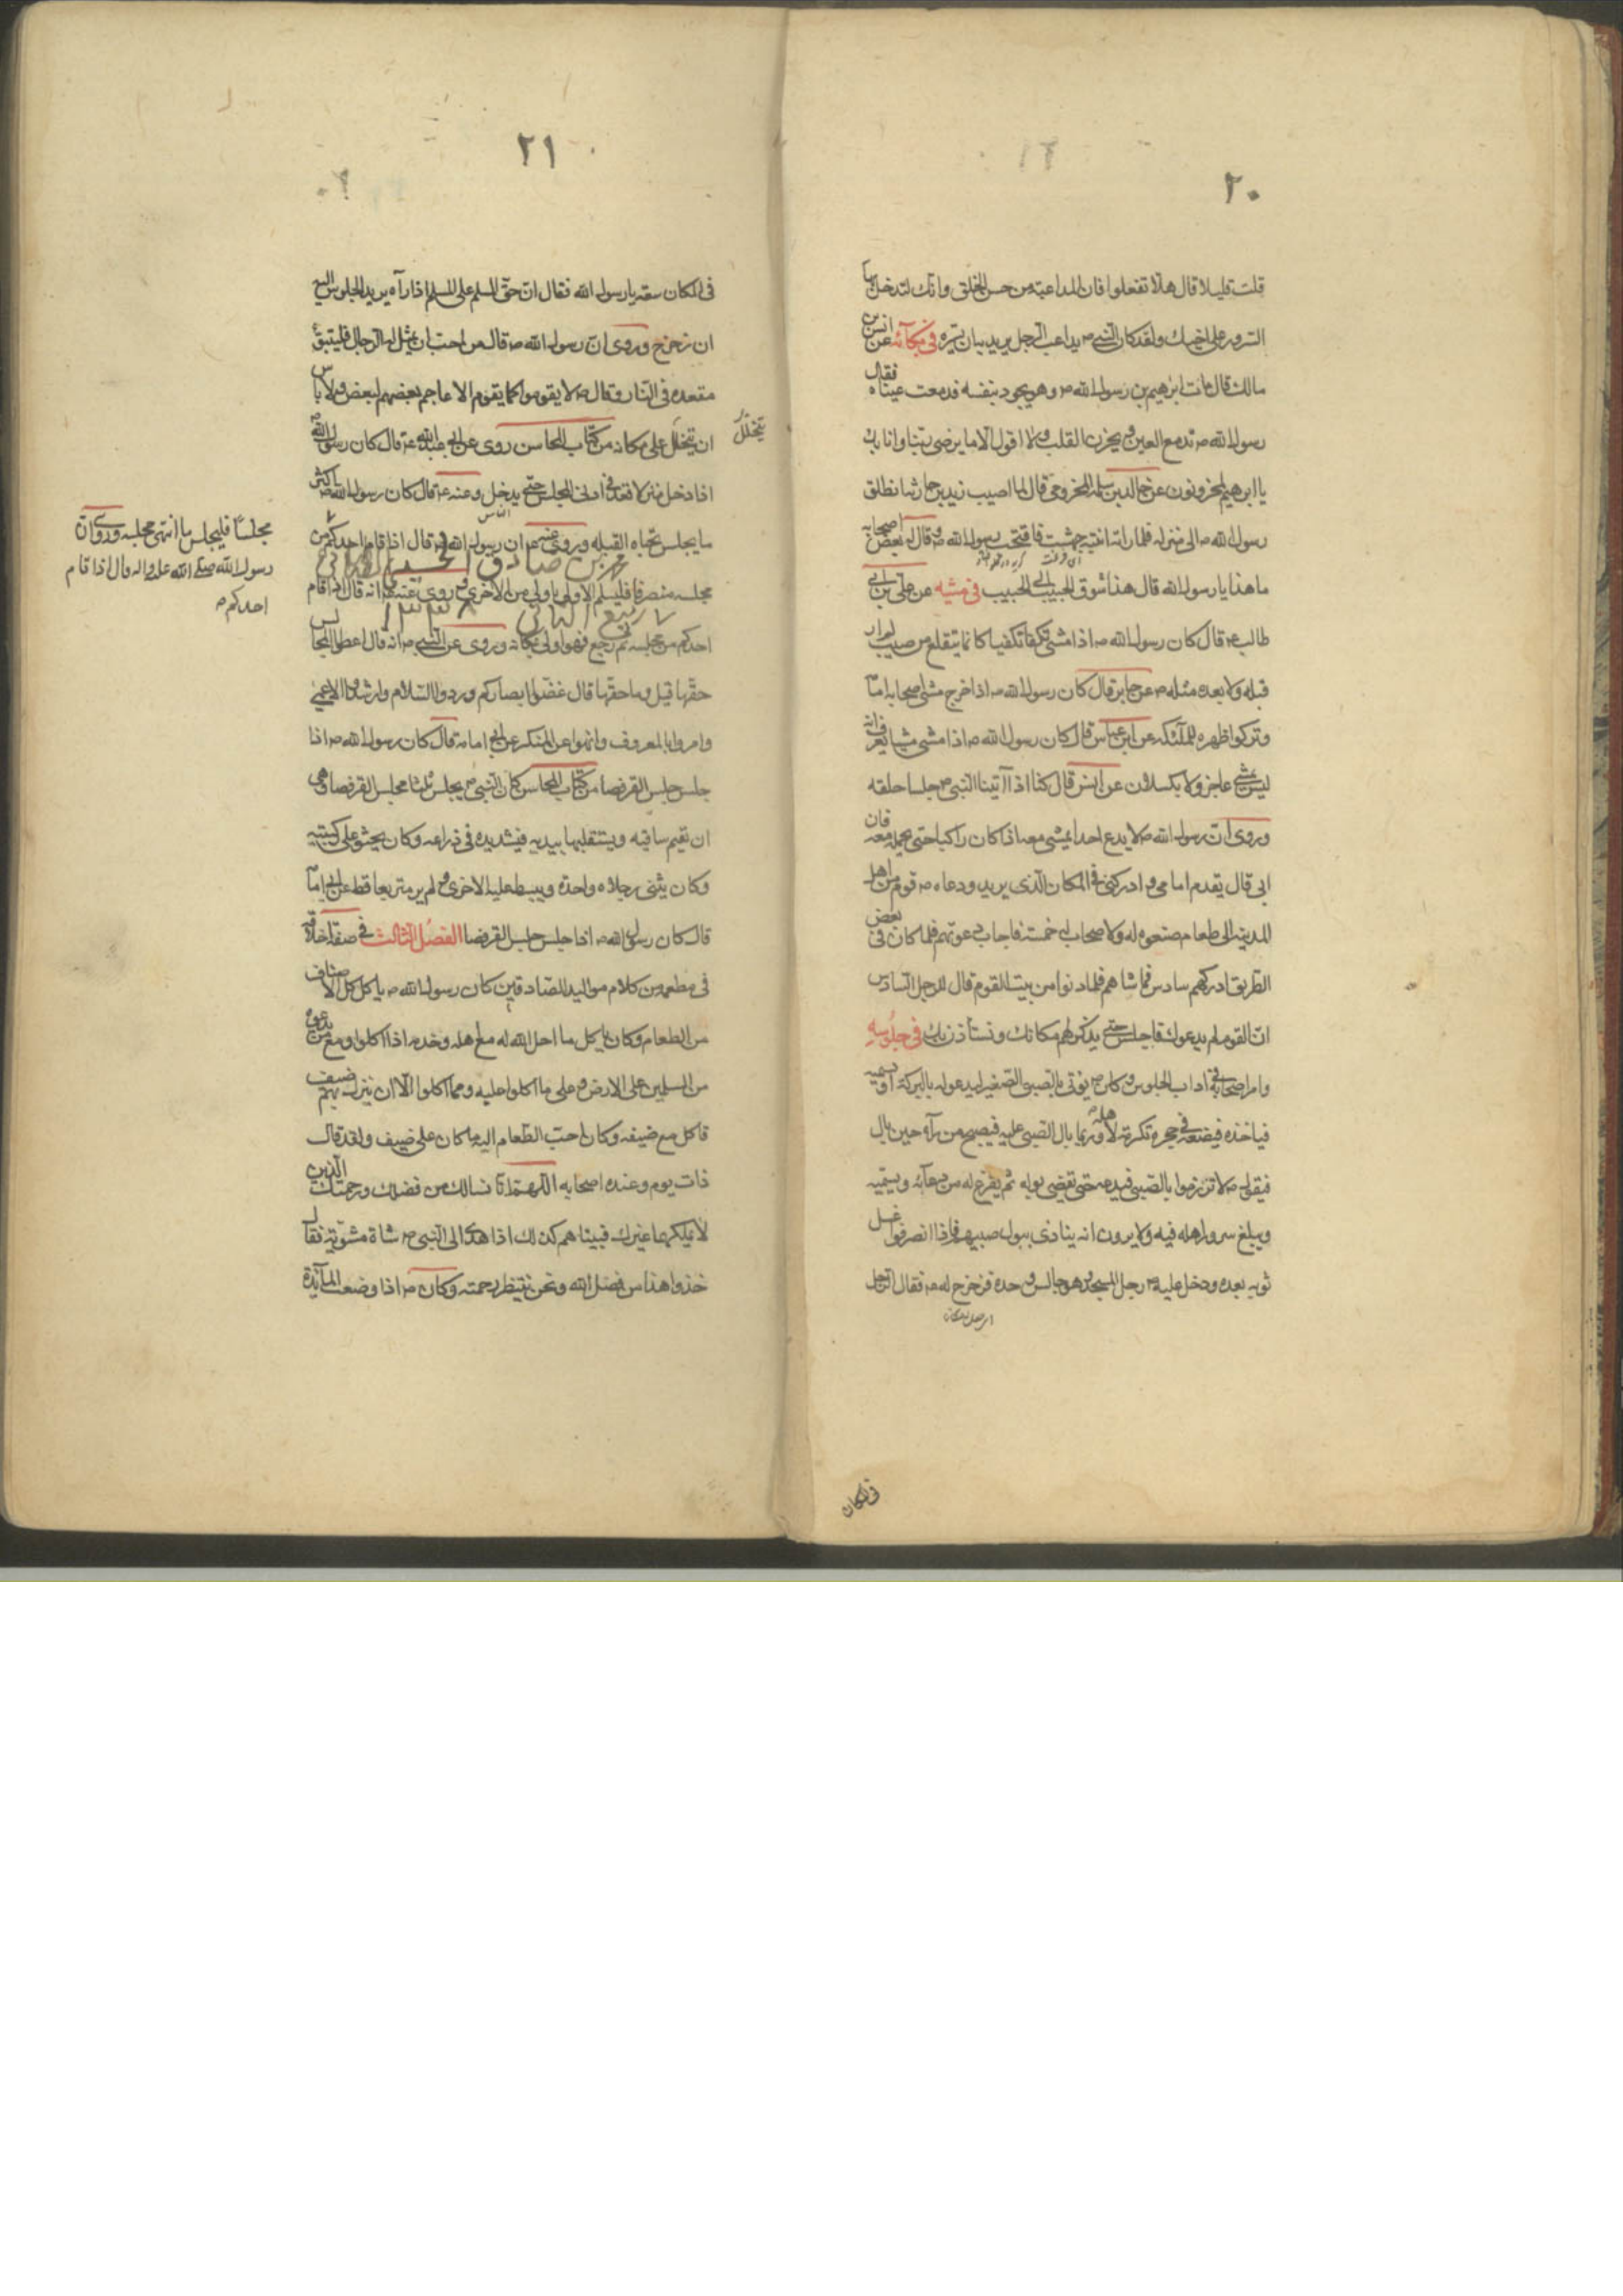 ٢٠
قلت قليلا قال هلا تفعلوا فان المداعبة من حسن الخلق وانك لتدخل بها
السرور على اخيك ولقد كان النبي ص يداعب الرجل يريد بان يسره في بكائه عن انس بن
مالك قال مات ابرهيم بن رسول الله ص وهو يجود بنفسه فدمعت عيناه فقال
رسول الله ص تدمع العين ويحزن القلب ولا اقول الا ما يرضى ربنا وانا بك
يا ابرهيم لمحزونون عن خالد بن سلمه المخزومي قال لما اصيب زيد بن حارثه انطلق
رسول الله ص الى منزله فلما راته ابنته جهشت فانتحب رسول الله ص وقال له بعض اصحابه
ما هذا يا رسول الله قال هذا شوق الحبيب الى الحبيب في مشيه عن علي بن ابي
طالب ع قال كان رسول الله ص اذا مشى تكفا تكفيا كانما يتقلع من صبب لم ار
قبله ولا بعده مثله ص عن جابر قال كان رسول الله ص اذا خرج مشى اصحابه امامه
وتركوا ظهره للملئكه عن ابن عباس قال كان رسول الله ص اذا مشى مشيا يعرف انه
ليس بمشي عاجز ولا بكسلان عن انس قال كنا اذا اتينا النبي ص جلسنا حلقه
وروى ان رسول الله ص لا يدع احدا يمشي معه اذا كان راكبا حتى يحمله معه فان
ابى قال تقدم امامي وادركني في المكان الذي يريد ودعاه ص قوم من اهل
المدينه الى طعام صنعوه له ولاصحاب له خمسة فاجاب دعوتهم فلما كان في بعض
الطريق ادركهم سادس فماشاهم فلما دنوا من بيت القوم قال للرجل السادس
ان القوم لم يدعوك فاجلس حتى نذكر لهم مكانك ونستأذن بك في جلوسه
وامر اصحابه في اداب الجلوس وكان ص يوتى بالصبي الصغير ليدعو له بالبركة او يسميه
فياخذه فيضعه في حجره تكرمة لاهله وربما بال الصبي عليه فيصيح من رآه حين بال
فيقول ص لا تزرموا بالصبي فيدعه حتى يقضي بوله ثم يفرغ له من دعآئه وتسميته
ويبلغ سرور اهله فيه ولا يرون انه يتاذى ببول صبيهم فاذا انصرفوا غسل
ثوبه بعده ودخل عليه ص رجل المسجد وهو جالس وحده فتزحزح له ص فقال الرجل
في المكان
٢١
في المكان سعة يا رسول الله فقال ان حق المسلم على المسلم اذا رآه يريد الجلوس اليه
ان تزحزح وروى ان رسول الله ص قال من احب ان يمثل له الرجال فليتبوء
مقعده في النار وقال ص لا تقوموا كما يقوم الاعاجم بعضهم لبعض ولا باس
ان يتخلل على مكانه من كتاب المحاسن روى عن ابي عبد الله ع قال كان رسول الله ص
يتخلل
اذا دخل منزلا قعد في ادنى المجلس حتى يدخل وعنه ع قال كان رسول الله ص اكثر
ما يجلس تجاه القبله وروى عنه ص ان رسول الله ص قال اذا قام احدكم من
مجلسه منصرفا فليسلم الاولى باولى من الاخرى وروى عنه ص انه قال اذا قام
احدكم من مجلسه ثم رجع فهو اولى بمكانه وروى عن النبي ص انه قال اعطوا المجالس
حقها قيل وما حقها قال غضوا ابصاركم وردوا السلام وارشدوا الاعمى
وامروا بالمعروف وانهوا عن المنكر عن ابي امامه قال كان رسول الله ص اذا
جلس جلس القرفصا من كتاب المحاسن كان النبي ص يجلس ثلثا مجلس القرفصا وهي
ان تقيم ساقيه ويستقلبها بيديه فيشد يده في ذراعه وكان يجثو على ركبتيه
وكان يثنى رجلاه واحدة ويبسط عليها الاخرى ولم ير متربعا قط عن ابي امامه
قال كان رسول الله ص اذا جلس جلس القرفصا الفصل الثالث في صفة اخلاقه
في مطعمه من كلام مواليد الصادقين كان رسول الله ص ياكل كل الاصناف
من الطعام وكان ياكل ما احل الله له مع اهله وخدمه اذا اكلوا ومع من يدعوه
من المسلمين على الارض وعلى ما اكلوا عليه ومما اكلوا الا ان ينزل بهم ضيف
فاكل مع ضيفه وكان احب الطعام اليه ما كان على ضيف ولقد قال
ذات يوم وعنده اصحابه اللهم انا نسالك من فضلك ورحمتك الذين
لا يملكهما غيرك فبينا هم كذلك اذا هدى الى النبي ص شاة مشوية فقال
خذوا هذا من فضل الله ونحن ننتظر رحمته وكان ص اذا وضعت المآئدة
مجلسا فليجلس ما انتهى مجلسه وروى ان
رسول الله صلى الله عليه واله قال اذا قام
احدكم ص